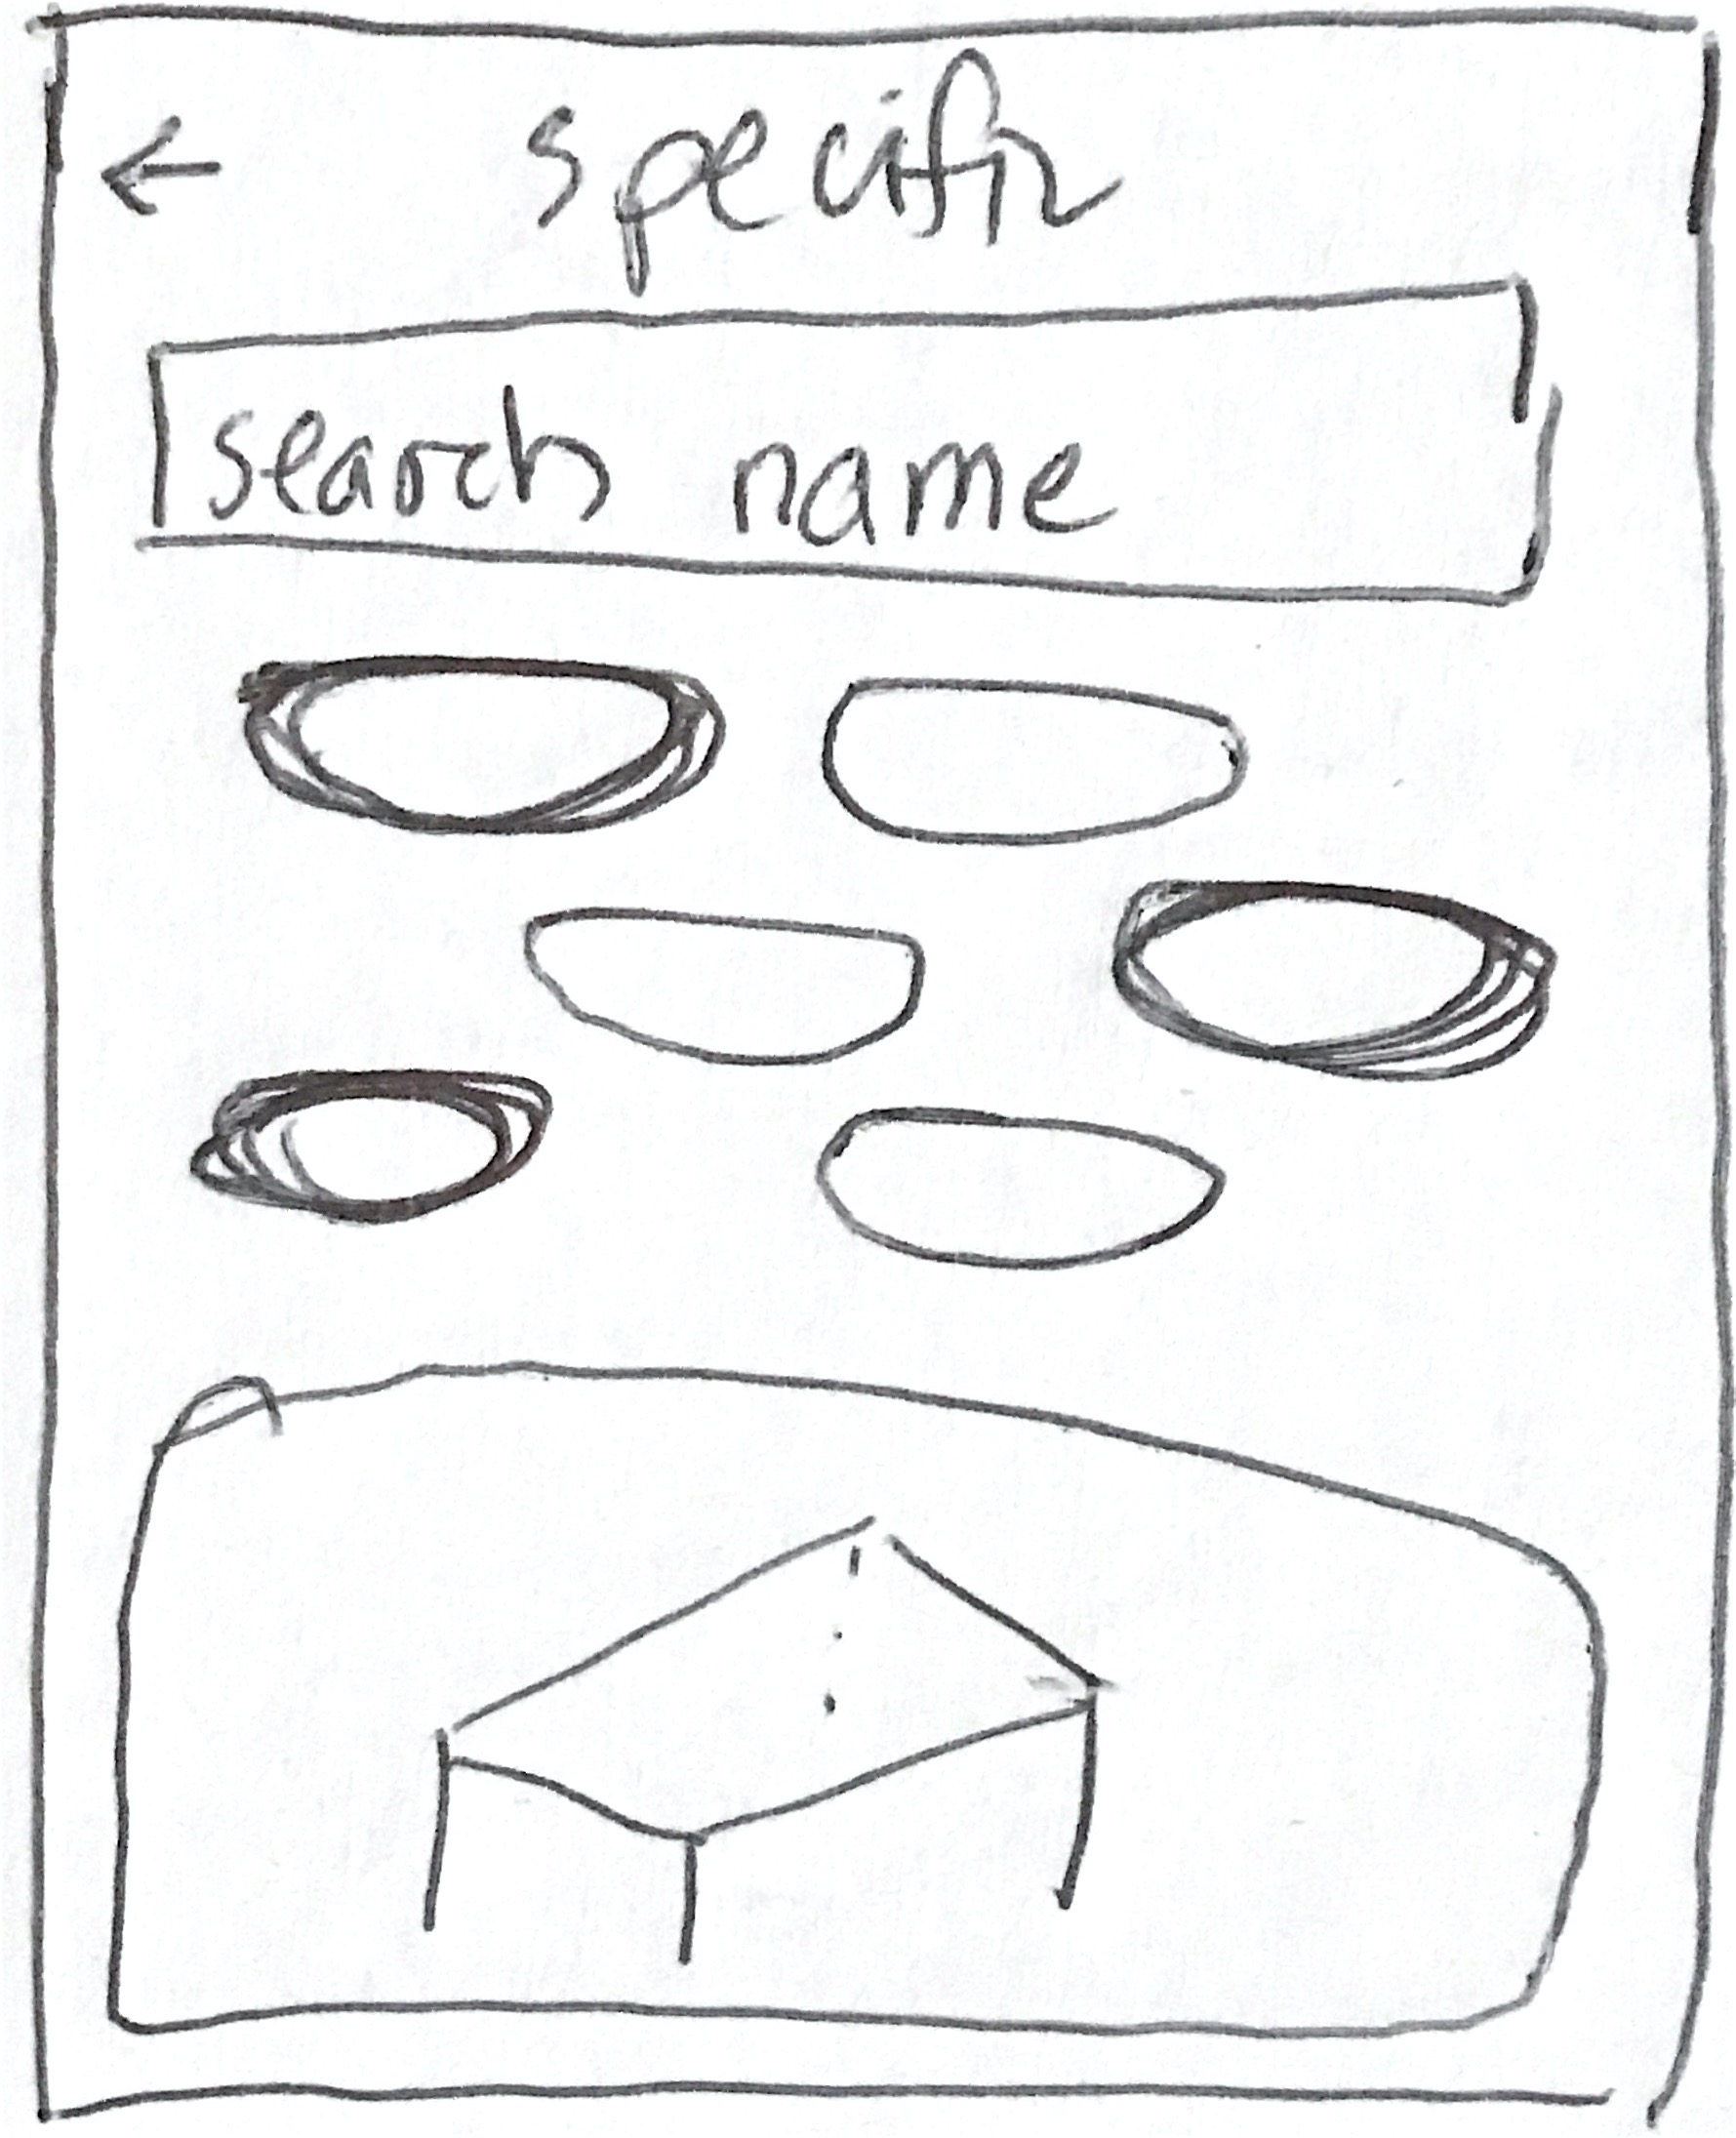 specific
search name